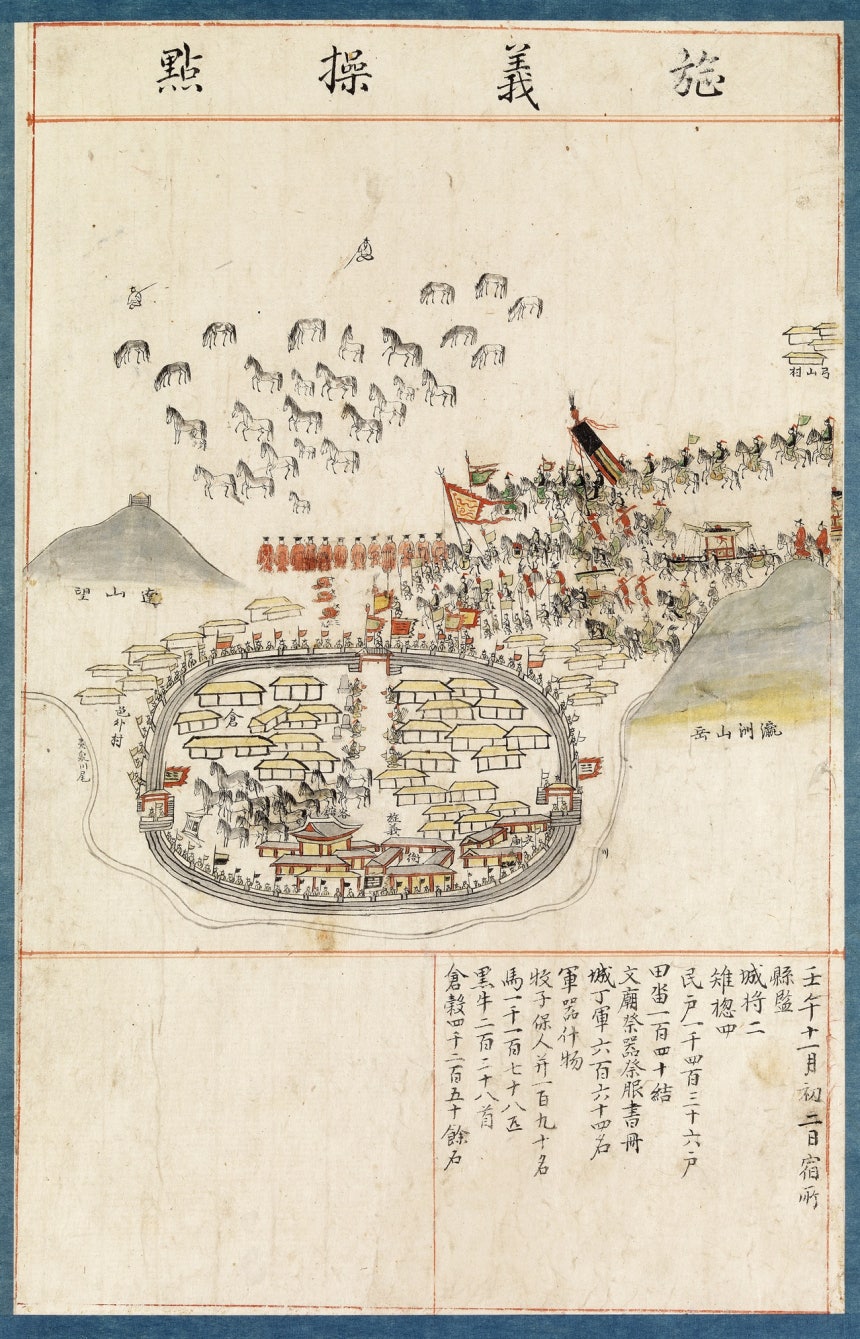 旌義操點
弓山村
達山望
瀛洲山岳
邑外村
倉
旌義
衙
文廟
壬午十一月初二日宿所
縣監
城將二
雉摠四
民戶一千四百三十六戶
田畓一百四十結
文廟祭器祭服書冊
城丁軍六百六十四名
軍器什物
牧子保人幷一百九十名
馬一千一百七十八匹
黑牛二百二十八首
倉穀四千二百五十餘石